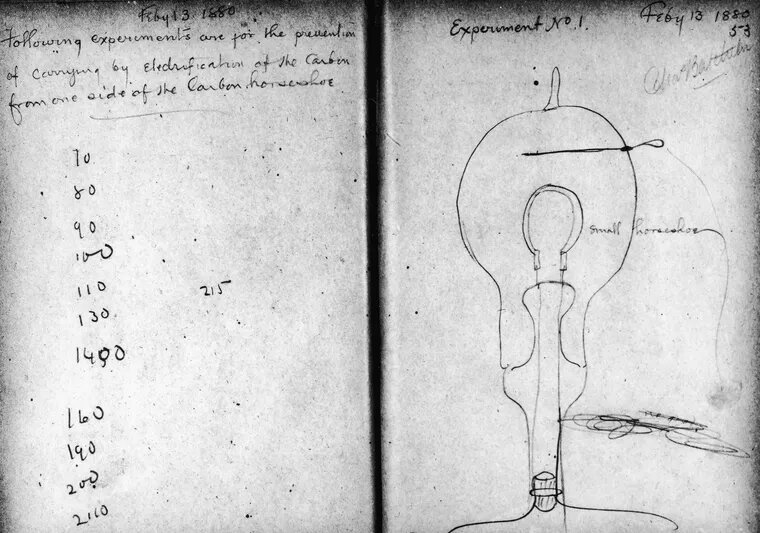 Feby 13 1880
Following experiments are for the prevention
of carrying by Electrification of the Carbon
from one side of the Carbon horseshoe
70
80
90
100
110
215
130
160
190
200
Experiment No. 1.
Feby 13 1880
53
small horseshoe